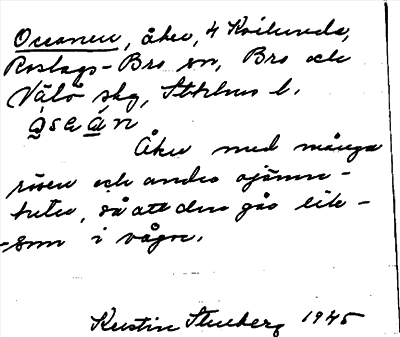 Oceanen, åker, 4 Kvilunda,
Roslags-Bro sn, Bro och
Vätö skg, Sthlms l.
oseán
Åker med många
rösen och andra ojämn-
heter, så att den går lik-
som i vågor.
Kerstin 1945